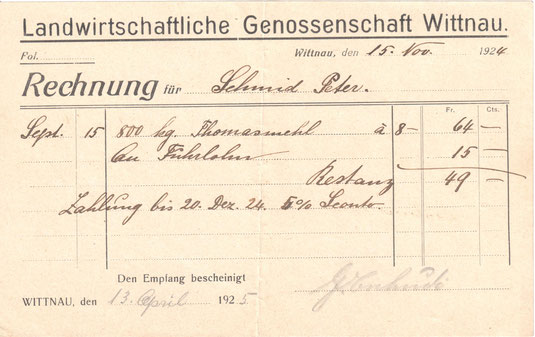 Landwirtschaftliche Genossenschaft Wittnau.
Fol. Wittnau, den 15. Nov. 1924
Rechnung für Schmid Peter.
Fr. Cts.
Sept. 15 800 kg. Thomasmehl à 8- 64 —
an Fuhrlohn 15 —
Restanz 49 —
Zahlung bis 20. Dez. 24. 5% Sconto.
Den Empfang bescheinigt
WITTNAU, den 13. April 1925